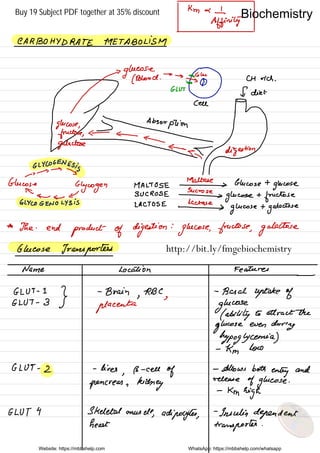 Buy 19 Subject PDF together at 35% discount
Km ∝ 1 / Affinity
Biochemistry
CARBOHYDRATE METABOLISM
glucose
(Blood)
Gluc
GLUT
Cell
CH rich
diet
Absorption
glucose,
fructose,
galactose
digestion
GLYCOGENESIS
Glucose
Glycogen
GLYCOGENOLYSIS
MALTOSE Maltase Glucose + glucose
SUCROSE Sucrase glucose + fructose
LACTOSE lactase glucose + galactose
* The end product of digestion: glucose, fructose, galactose
Glucose Transporters
http://bit.ly/fmgebiochemistry
Name Location Features
GLUT-1
GLUT-3
- Brain, RBC,
placenta
- Basal uptake of
glucose
(ability to attract the
glucose even during
hypoglycemia)
- Km low
GLUT-2
- liver, β-cell of
pancreas, kidney
- allows both entry and
release of glucose.
- Km high
GLUT 4
Skeletal muscle, adipocytes,
heart
- Insulin dependent
transporter.
Website: https://mbbshelp.com
WhatsApp: https://mbbshelp.com/whatsapp